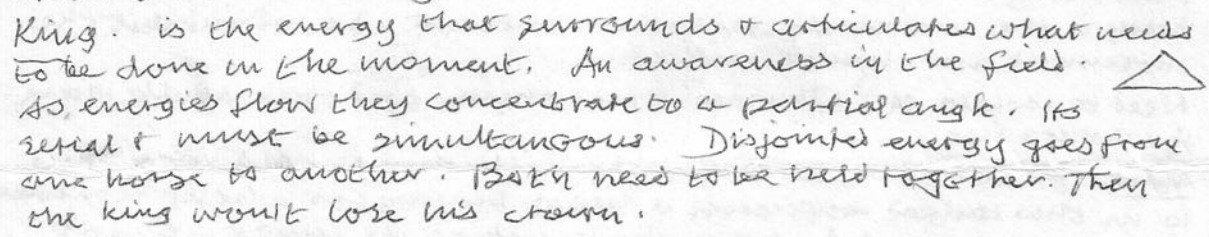 King. is the energy that surrounds & articulates what needs
to be done in the moment. An awareness in the field
As, energies flow they concentrate to a partial angle. Its
serial & must be simultaneous. Disjointed energy goes from
one horse to another. Both need to be held together. Then
the king won't lose his crown.